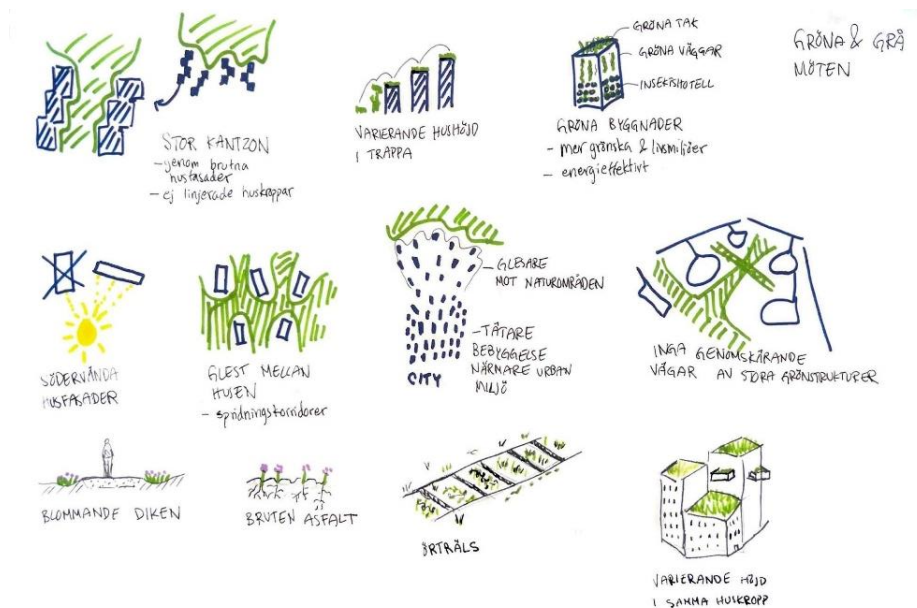 GRÖNA & GRÅ
MÖTEN
STOR KANTZON
- genom brutna
husfasader
- ej linjerade huskroppar
VARIERANDE HUSHÖJD
I TRAPPA
GRÖNA TAK
GRÖNA VÄGGAR
INSEKTSHOTELL
GRÖNA BYGGNADER
- mer grönska & livsmiljöer
- energieffektivt
SÖDERVÄNDA
HUSFASADER
GLEST MELLAN
HUSEN
- spridningskorridorer
GLESARE
MOT NATUROMRÅDEN
TÄTARE
BEBYGGELSE
NÄRMARE URBAN
MILJÖ
CITY
INGA GENOMSKÄRANDE
VÄGAR AV STORA GRÖNSTRUKTURER
BLOMMANDE DIKEN
BRUTEN ASFALT
ÖRTRÄLS
VARIERANDE HÖJD
I SAMMA HUSKROPP